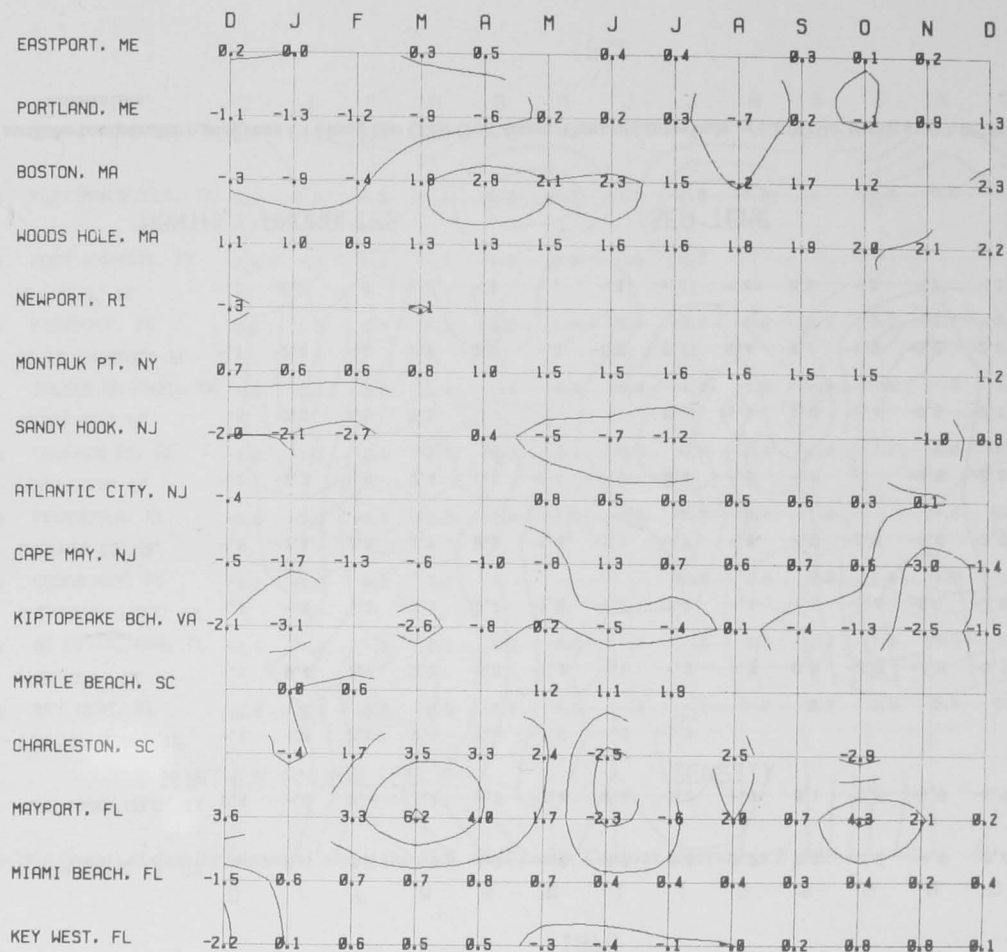 D J F M A M J J A S O N D
EASTPORT. ME 0.2 0.0 0.3 0.5 0.4 0.4 0.3 0.1 0.2
PORTLAND. ME -1.1 -1.3 -1.2 -.9 -.6 0.2 0.2 0.3 -.7 0.2 -.1 0.9 1.3
BOSTON. MA -.3 -.9 -.4 1.0 2.8 2.1 2.3 1.5 -.2 1.7 1.2 2.3
WOODS HOLE. MA 1.1 1.0 0.9 1.3 1.3 1.5 1.6 1.6 1.8 1.9 2.0 2.1 2.2
NEWPORT. RI -.3
MONTAUK PT. NY 0.7 0.6 0.6 0.8 1.0 1.5 1.5 1.6 1.6 1.5 1.5 1.2
SANDY HOOK. NJ -2.0 -2.1 -2.7 0.4 -.5 -.7 -1.2 -1.0 0.8
ATLANTIC CITY. NJ -.4 0.8 0.5 0.8 0.5 0.6 0.3 0.1
CAPE MAY. NJ -.5 -1.7 -1.3 -.6 -1.0 -.8 1.3 0.7 0.6 0.7 0.6 -3.0 -1.4
KIPTOPEAKE BCH. VA -2.1 -3.1 -2.6 -.8 0.2 -.5 -.4 0.1 -.4 -1.3 -2.5 -1.6
MYRTLE BEACH. SC 0.0 0.6 1.2 1.1 1.9
CHARLESTON. SC -.4 1.7 3.5 3.3 2.4 -2.5 2.5 -2.9
MAYPORT. FL 3.6 3.3 6.2 4.0 1.7 -2.3 -.6 2.0 0.7 4.3 2.1 0.2
MIAMI BEACH. FL -1.5 0.6 0.7 0.7 0.8 0.7 0.4 0.4 0.4 0.3 0.4 0.2 0.4
KEY WEST. FL -2.2 0.1 0.6 0.5 0.5 -.3 -.4 -.1 0.2 0.8 0.8 0.1